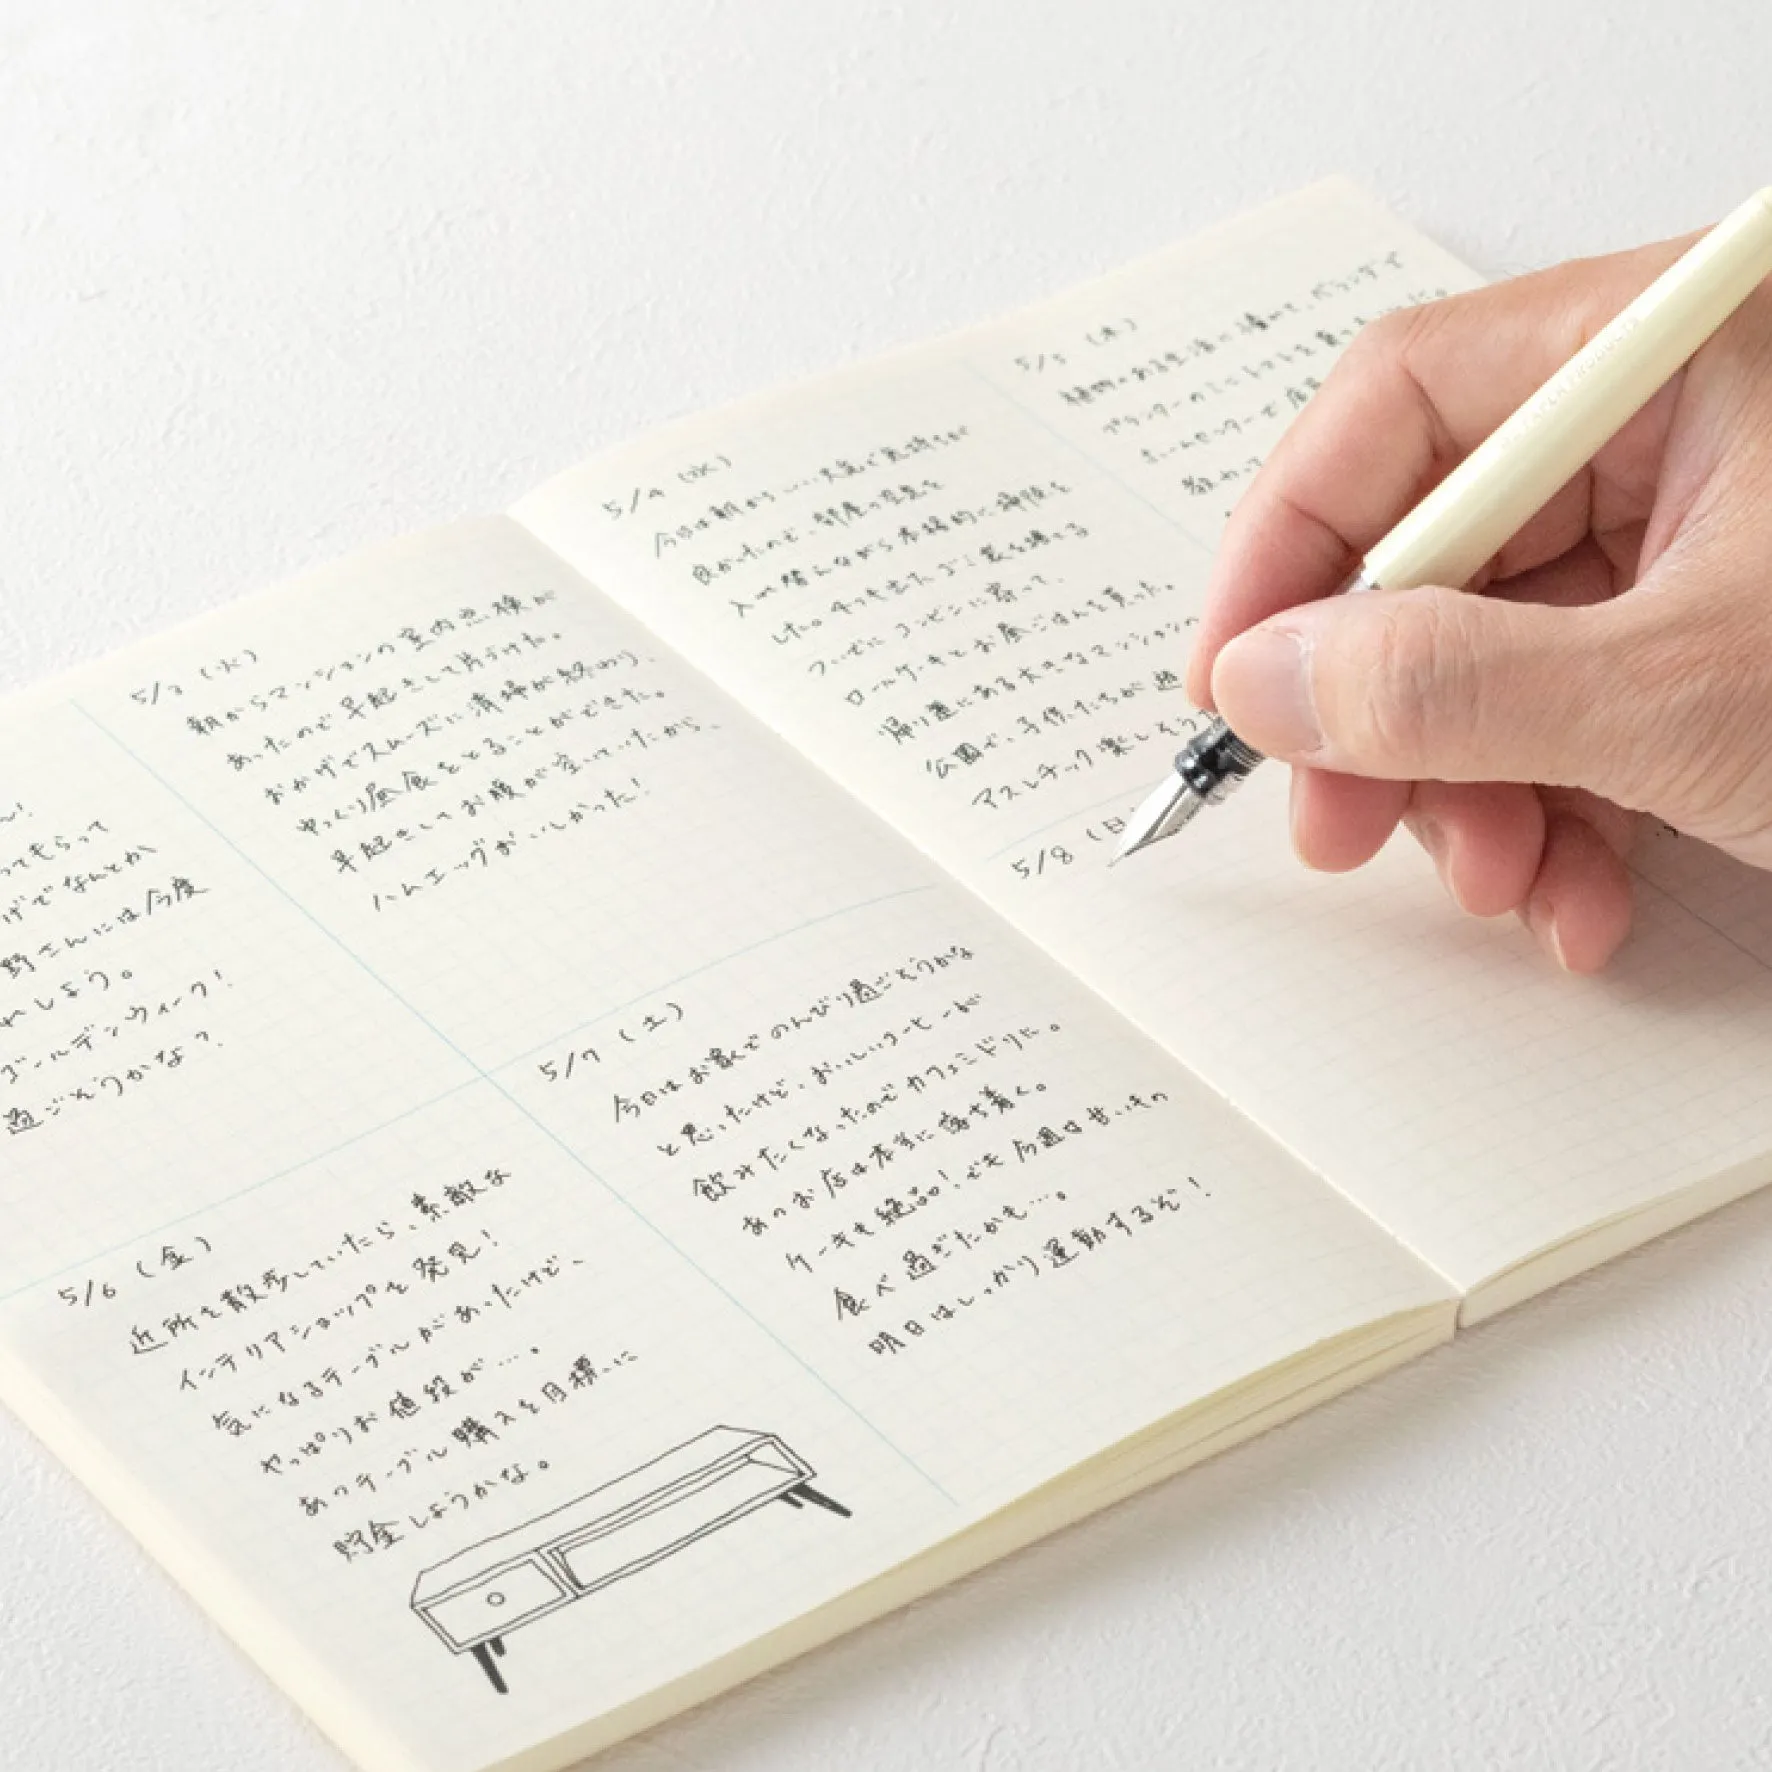 ん!
ってもらって
げでなんとか
野さんには今度
れしよう。
ゴールデンウィーク!
過ごそうかな?
5/3 (火)
朝からマンションの室内点検が
あったので早起きして片づけた。
おかげでスムーズに清掃が終わり、
ゆっくり昼食をとることができた。
早起きしてお腹が空いていたから、
ハムエッグがおいしかった!
5/6 (金)
近所を散歩していたら、素敵な
インテリアショップを発見!
気になるテーブルがあったけど、
やっぱりお値段が…。
あのテーブル購入を目標に
貯金しようかな。
5/7 (土)
今日はお家でのんびり過ごそうかな
と思ったけど、おいしいコーヒーが
飲みたくなったのでカフェミドリに。
あのお店は本当に落ち着く。
ケーキも絶品!でも今週は甘いもの
食べ過ぎたかも…。
明日はしっかり運動するぞ!
5/4 (水)
今日は朝からいい天気で気持ちが
良かったので、部屋の空気を
入れ替えながら本格的に掃除を
した。すっきり出たゴミ袋を捨てる
ついでにコンビニに寄って、
ロールケーキとお昼ごはんを買った。
帰り道にある大きなマンションの
公園で、子供たちが遊
アスレチック楽しそう
5/5 (木)
植物のある生活に憧れて、ベランダで
プランターのミニトマトを
ホームセンターで店
教わって
5/8 (日